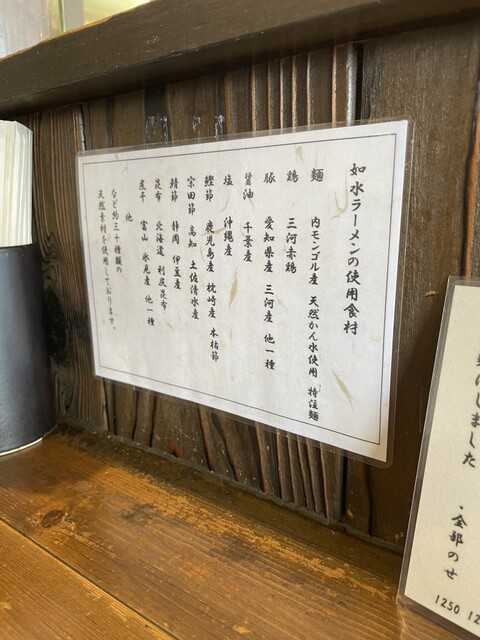 如水ラーメンの使用食材
麺 内モンゴル産 天然かん水使用 特注麺
鶏 三河赤鶏
豚 愛知県産 三河産 他一種
醤油 千葉産
塩 沖縄産
鰹節 鹿児島産 枕崎産 本枯節
宗田節 高知 土佐清水産
鯖節 静岡 伊豆産
昆布 北海道 利尻昆布
煮干 富山 氷見産 他一種
他
など約三十種類の
天然素材を使用しております。
しました
・全部のせ
1250